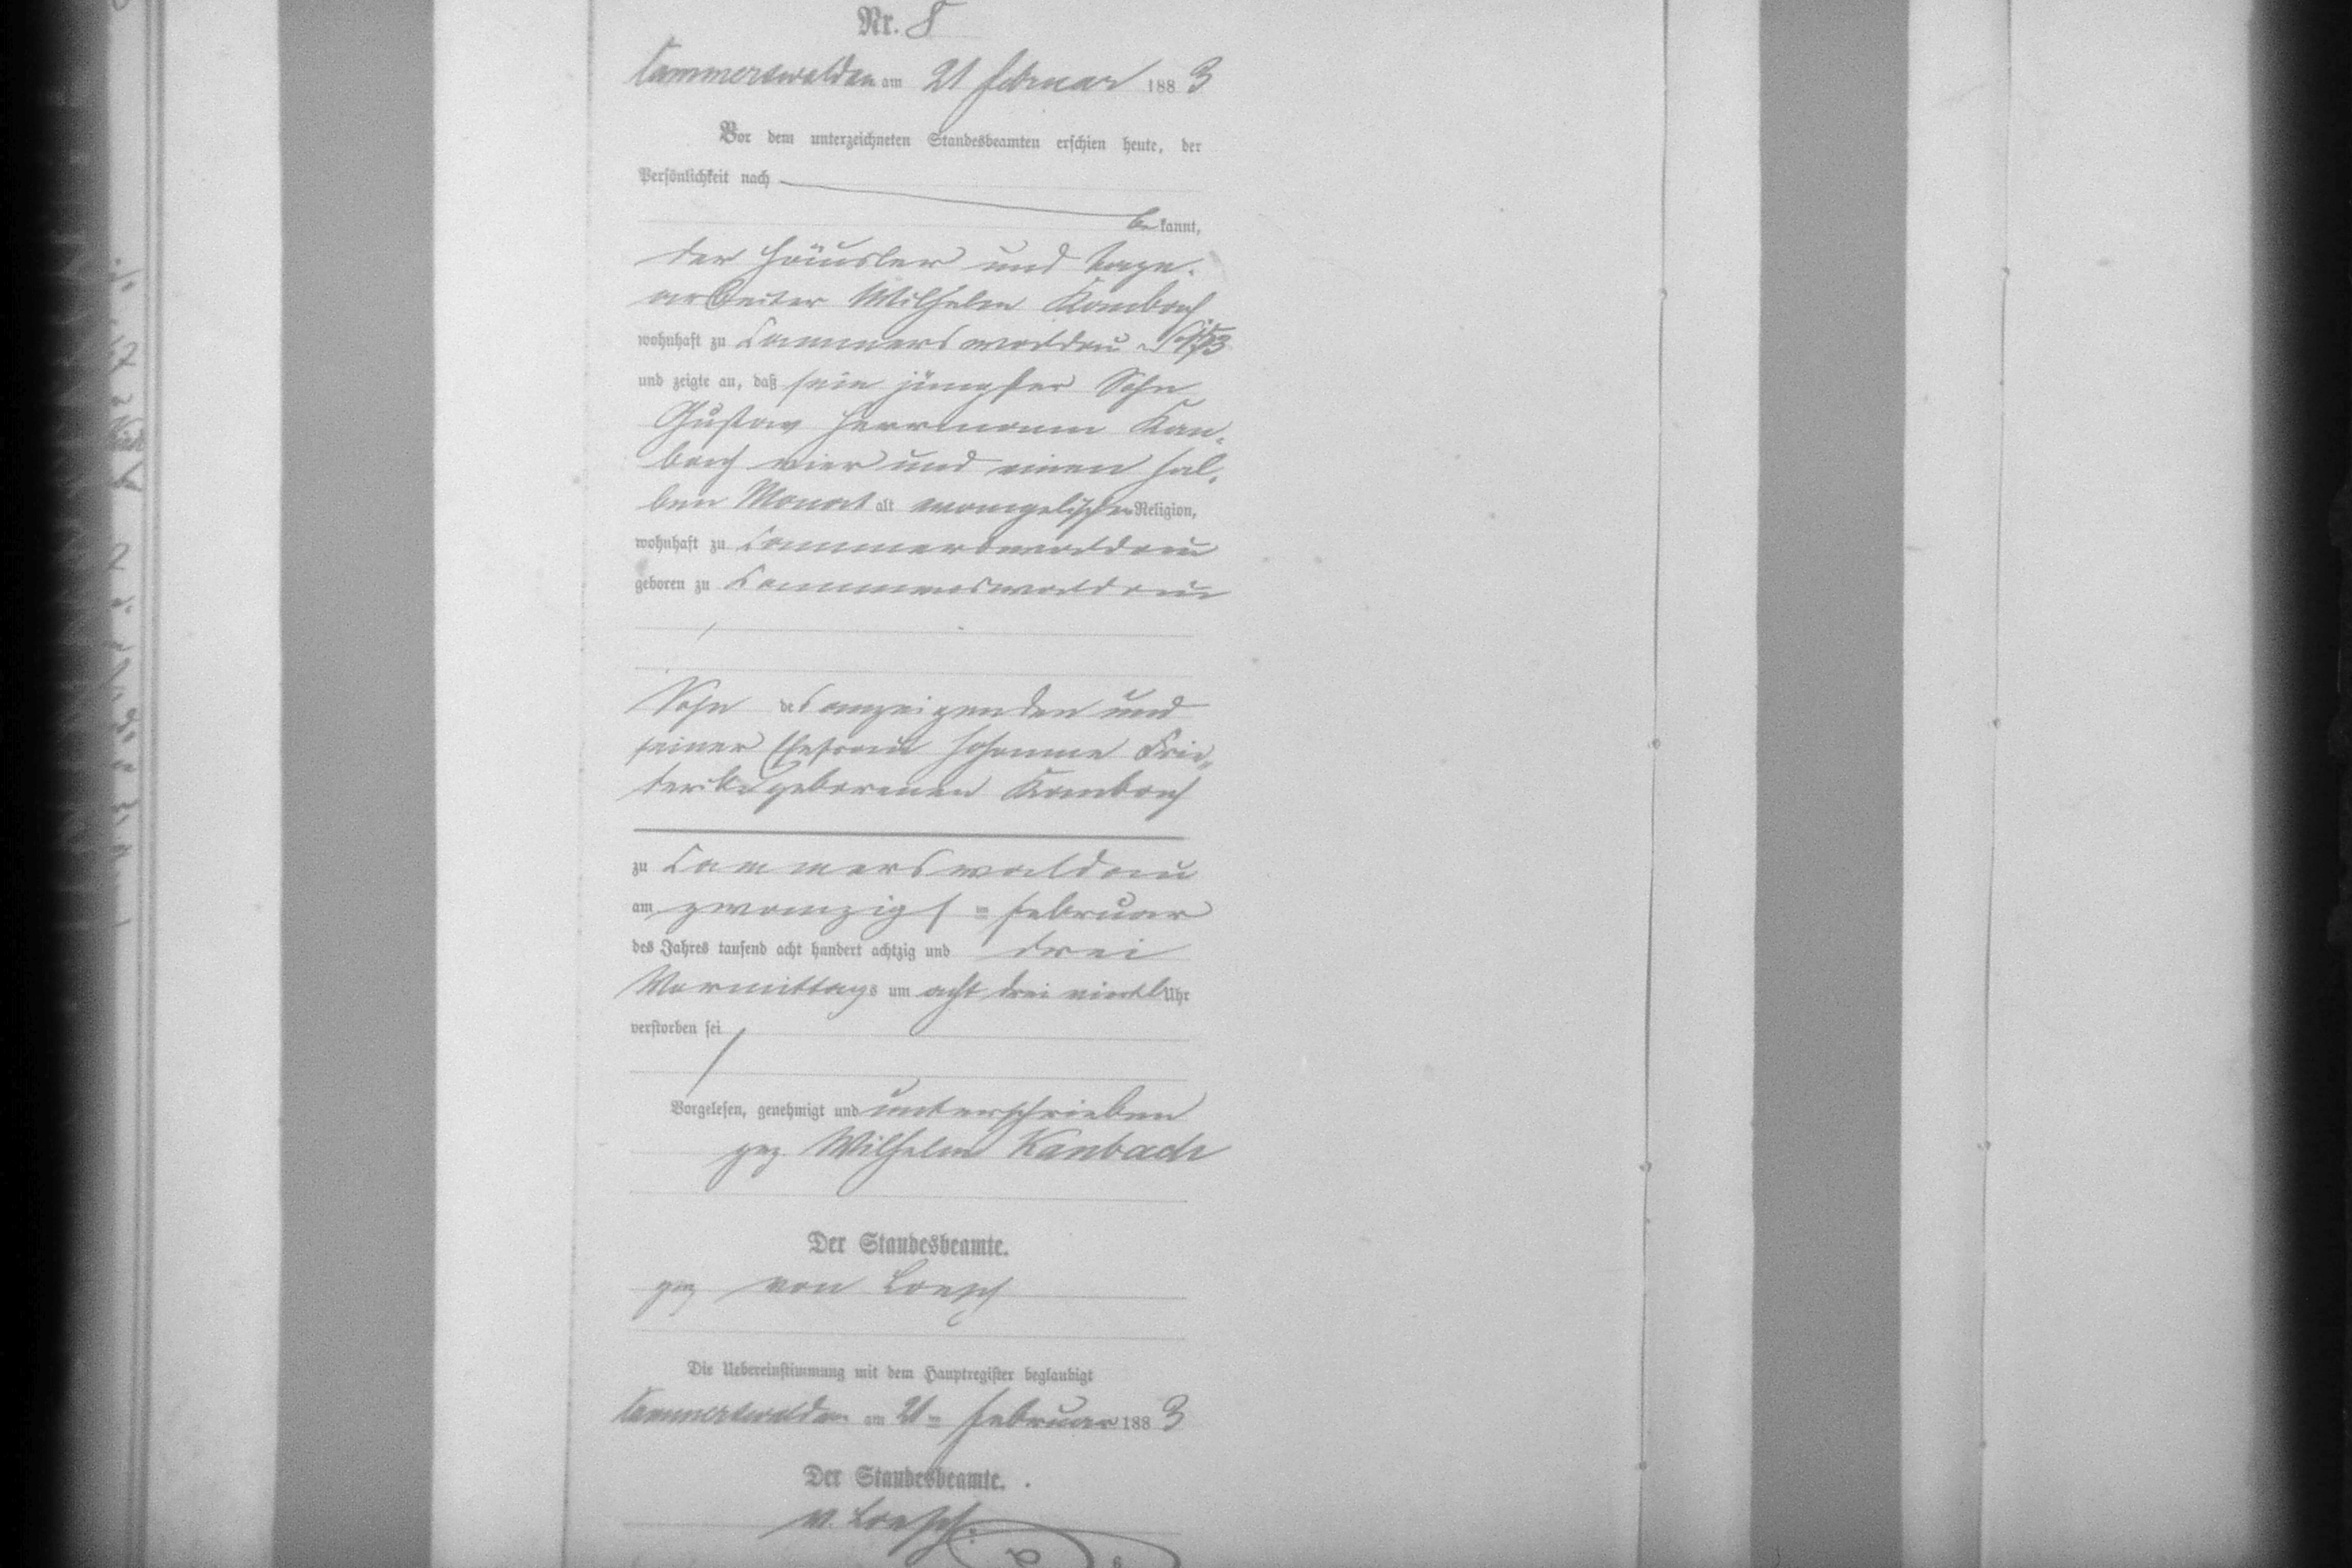 Nr. 8
Cammerswaldau am 21 Februar 1883
Vor dem unterzeichneten Standesbeamten erschien heute, der
Persönlichkeit nach
bekannt,
der Häusler und Tage-
arbeiter Wilhelm Kambach
wohnhaft zu Cammerswaldau
und zeigte an, daß sein jüngster Sohn
Gustav Herrmann Kan-
bach vier und einen hal-
ben Monat alt evangelischer Religion,
wohnhaft zu Cammerswaldau
geboren zu Cammerswaldau
Sohn des anzeigenden und
seiner Ehefrau Johanne Frie-
derike geborenen Kambach
zu Cammerswaldau
am zwanzigsten Februar
des Jahres tausend acht hundert achtzig und drei
Vormittags um acht drei viertl Uhr
verstorben sei
Vorgelesen, genehmigt und unterschrieben
gez Wilhelm Kanbach
Der Standesbeamte.
gez von Loesch
Die Uebereinstimmung mit dem Hauptregister beglaubigt
Cammerswaldau am 21ten Februar 1883
Der Standesbeamte.
v. Loesch.